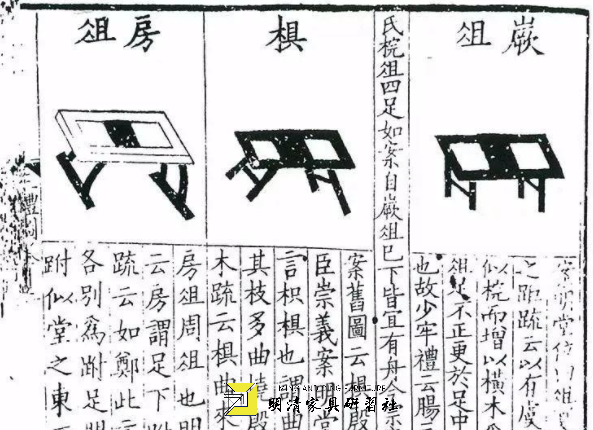 嶡俎
之距疏云以有虞
似梡而增以橫木
俎足不正更於足中
也故少牢禮云腸三
氏梡俎四足如案自嶡俎已下皆宜有舟今崇
椇
案舊圖云椇殷
臣崇義案明堂
言枳椇也謂曲
其枝多曲橈殷
木疏云椇曲來
房俎
房俎周俎也明
云房謂足下跗
疏云如鄭此言
各別為跗足明
跗似堂之東
明清家具研習社